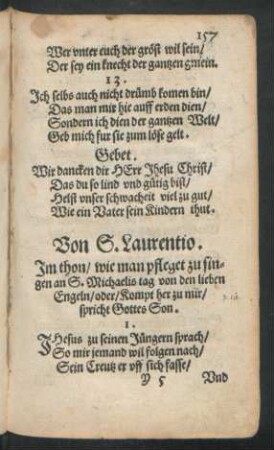 157
Wer vnter euch der gröst wil sein/
Der sey ein knecht der gantzen gmein.
13.
Ich selbs auch nicht drümb komen bin/
Das man mir hie auff erden dien/
Sondern ich dien der gantzen Welt/
Geb mich fur sie zum löse gelt.
Gebet.
Wir dancken dir HErr Jhesu Christ/
Das du so lind vnd gütig bist/
Helst vnser schwacheit viel zu gut/
Wie ein Vater sein Kindern thut.
Von S. Laurentio.
Im thon/ wie man pfleget zu sin-
gen an S. Michaelis tag von den lieben
Engeln/ oder/ Kompt her zu mir/
spricht Gottes Son.
1.
JHesus zu seinen Jüngern sprach/
So mir jemand wil folgen nach/
Sein Creutz er vff sich fasse/
Y 5 Vnd